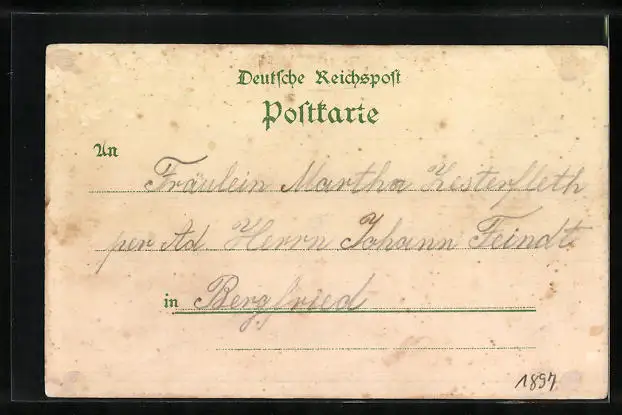 Deutsche Reichspost
Postkarte
An
Fräulein Martha Zesterfleth
per Ad. Herrn Johann Feindt
in Bergfried
1897